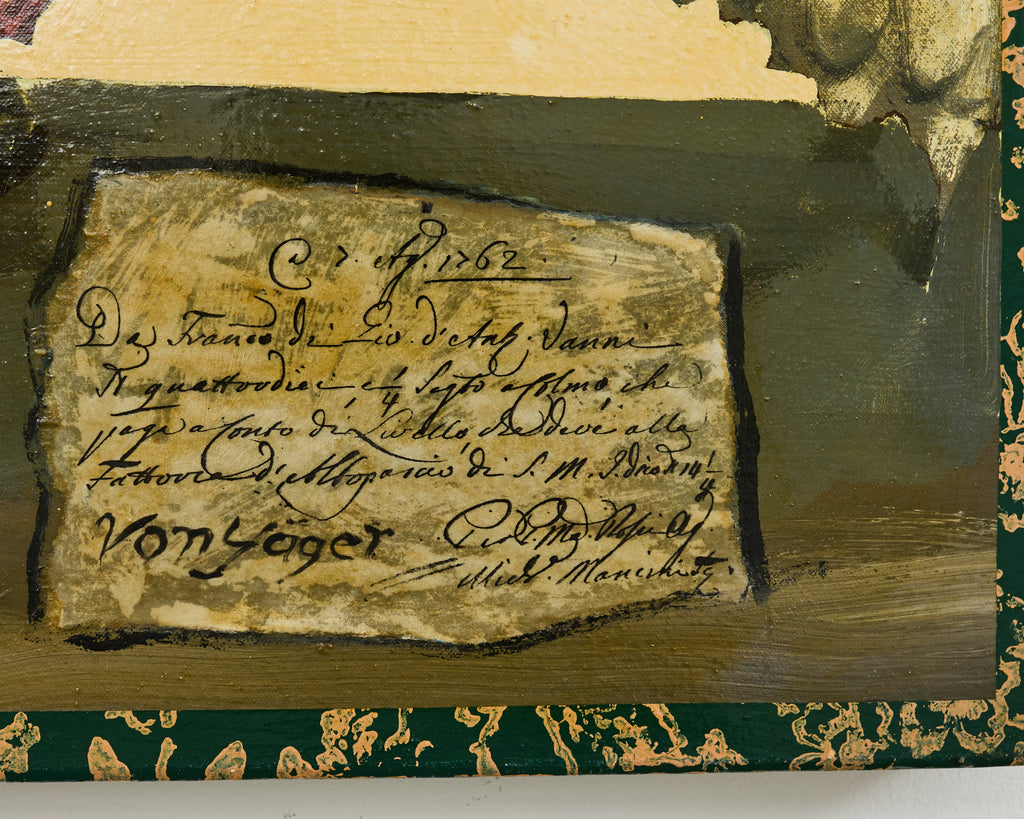 7. Ag. 1762.
Da Franco di Gio. d'Ant. Vanni
quattordici e 1/4 Segto a Colmo, che
paga a Conto di Livello, che deve alla
Fattoria d'Altopascio di S. M. I. 14 1/4
Von Jäger Gio.
Mich. Mancini